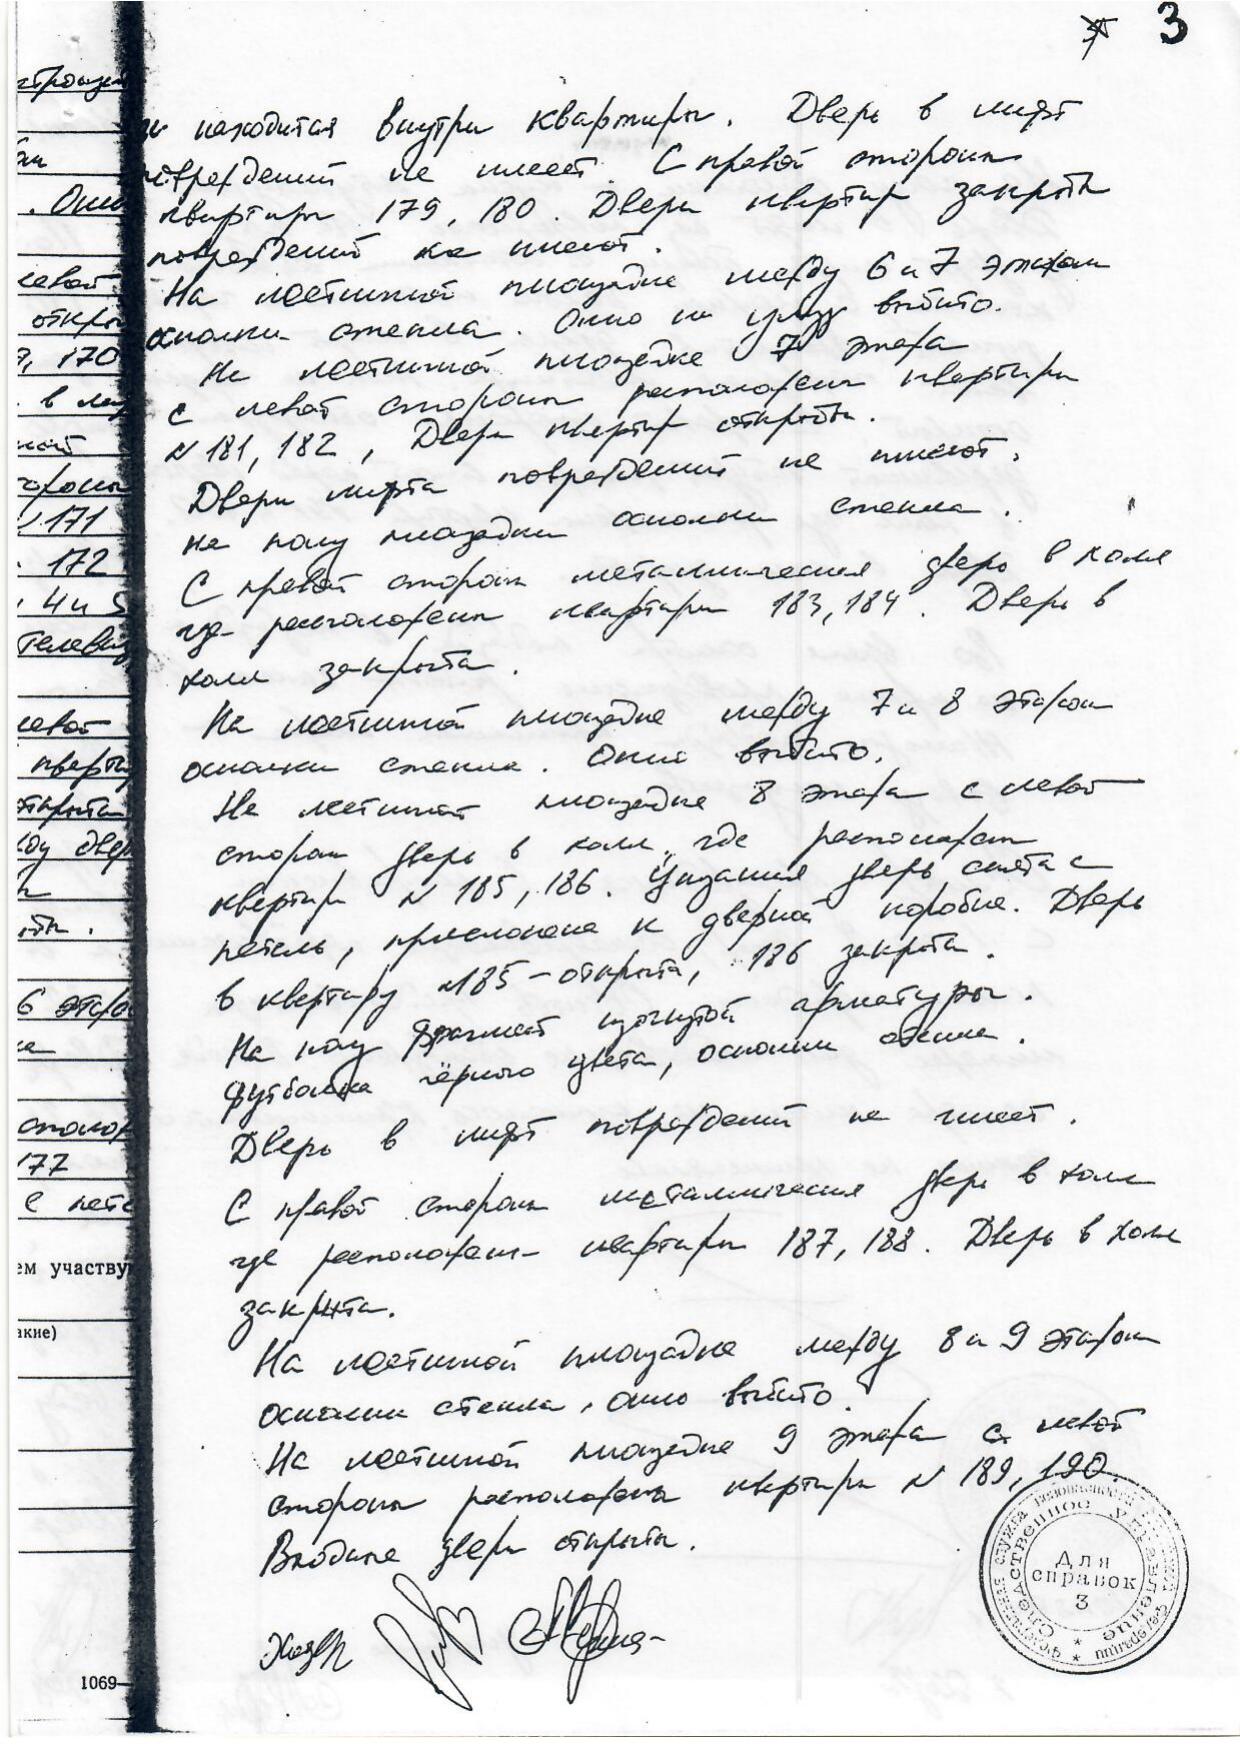 3
находится внутри квартиры. Дверь в лифт
повреждений не имеет. С правой стороны
квартиры 179, 180. Двери квартир закрыты
повреждений не имеют.
На лестничной площадке между 6 и 7 этажом
осколки стекла. Окно на улицу выбито.
На лестничной площадке 7 этажа
с левой стороны расположены квартиры
N 181, 182, Двери квартир открыты.
Двери лифта повреждений не имеют.
На полу площадки осколки стекла.
С правой стороны металлическая дверь в холл
где расположены квартиры 183, 184. Дверь в
холл закрыта.
На лестничной площадке между 7 и 8 этажом
осколки стекла. Окно выбито.
На лестничной площадке 8 этажа с левой
стороны дверь в холл, где расположены
квартиры N 185, 186. Указанная дверь снята с
петель, прислонена к дверной коробке. Дверь
в квартиру N185 - открыта, 186 закрыта.
На полу фрагмент изогнутой арматуры.
футболка чёрного цвета, осколки стекла.
Дверь в лифт повреждений не имеет.
С правой стороны металлическая дверь в холл
где расположены квартиры 187, 188. Дверь в холл
закрыта.
На лестничной площадке между 8 и 9 этажом
осколки стекла, окно выбито.
На лестничной площадке 9 этажа с левой
стороны расположены квартиры N 189, 190.
Входные двери открыты.
170
171
172
4 и 5
177
ем участву
акие)
1069-
Федеральная служба безопасности
Следственное управление
Для
справок
3